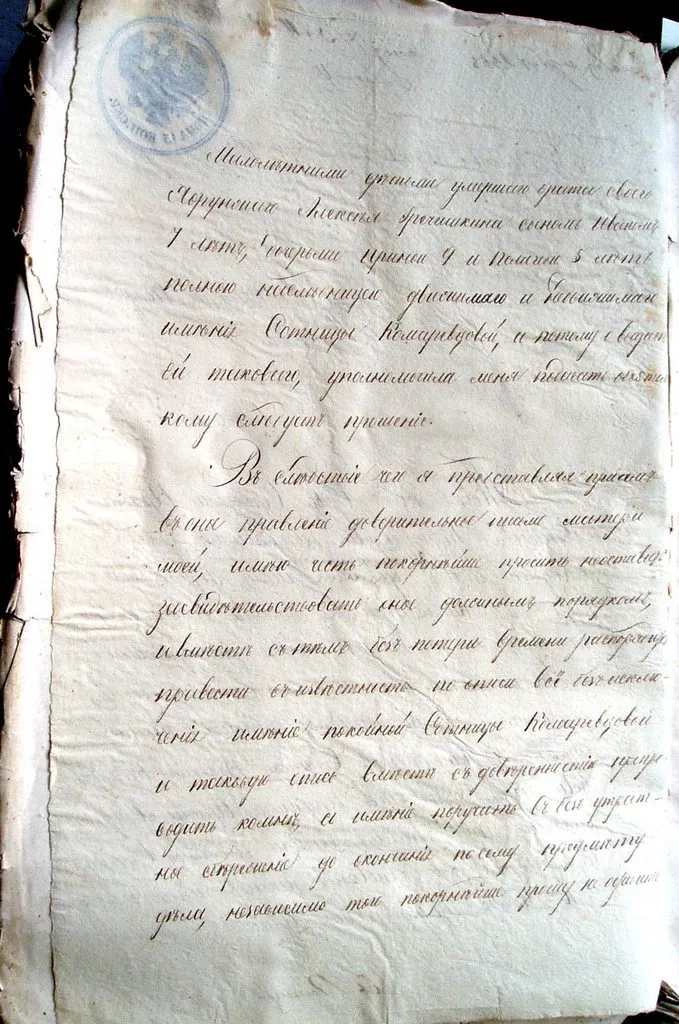 Малолѣтними дѣтьми умершаго брата своего
Хорунжаго Алексѣя Гречишкина сыномъ Иваномъ
7 лѣтъ, дочерьми Ириной 9 и Пелагіей 5 лѣтъ
полною наслѣдницею движимаго и
имѣнія Сотницы Комаревцовой, а потому о выдачѣ
ей таковой, уполномочила меня подать
кому слѣдуетъ прошеніе.
Въ слѣдствіе чего я представляя при семъ
въ оны правленіе доверительны письма матери
моей, имѣю честь покорнѣйше просить
засвидѣтельствовать оное должнымъ порядкомъ,
и вмѣстѣ съ тѣмъ безъ потери времени
привести въ извѣстность по описи всё безъ исклю-
ченія имѣніе покойной Сотницы Комаревцовой
и таковую опись вмѣстѣ съ довѣренностію препро
водить комнѣ, а имѣніе поручить въ безъ утрат-
ны сбереженіе до окончанія по сему предмѣту
дѣла, независимо того покорнѣйше прошу не